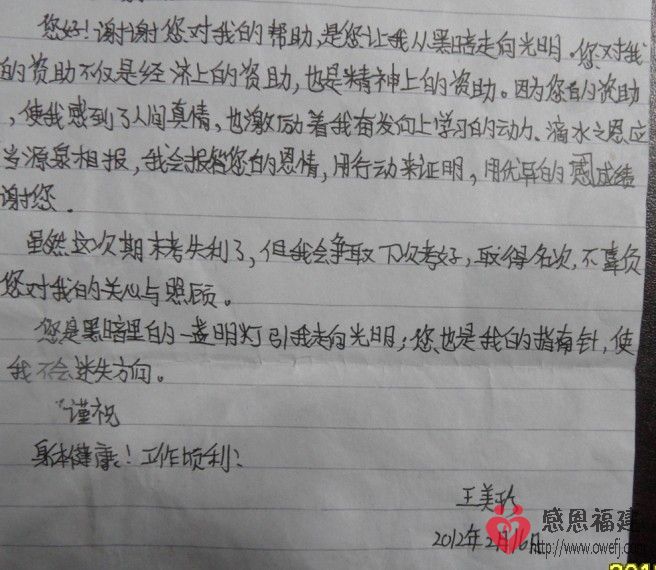 您好!谢谢您对我的帮助,是您让我从黑暗走向光明.您对我
的资助不仅是经济上的资助,也是精神上的资助。因为您的资助
,使我感到了人间真情,也激励着我奋发向上学习的动力、滴水之恩应
当源泉相报,我会报答您的恩情,用行动来证明,用优异的成绩
谢您.
虽然这次期末考失利了,但我会争取下次考好,取得名次,不辜负
您对我的关心与照顾。
您是黑暗里的一盏明灯引我走向光明;您也是我的指南针,使
我不会迷失方向。
谨祝
身体健康!工作顺利!
王美
2012年2月16日
感恩福建
http://www.owefj.com